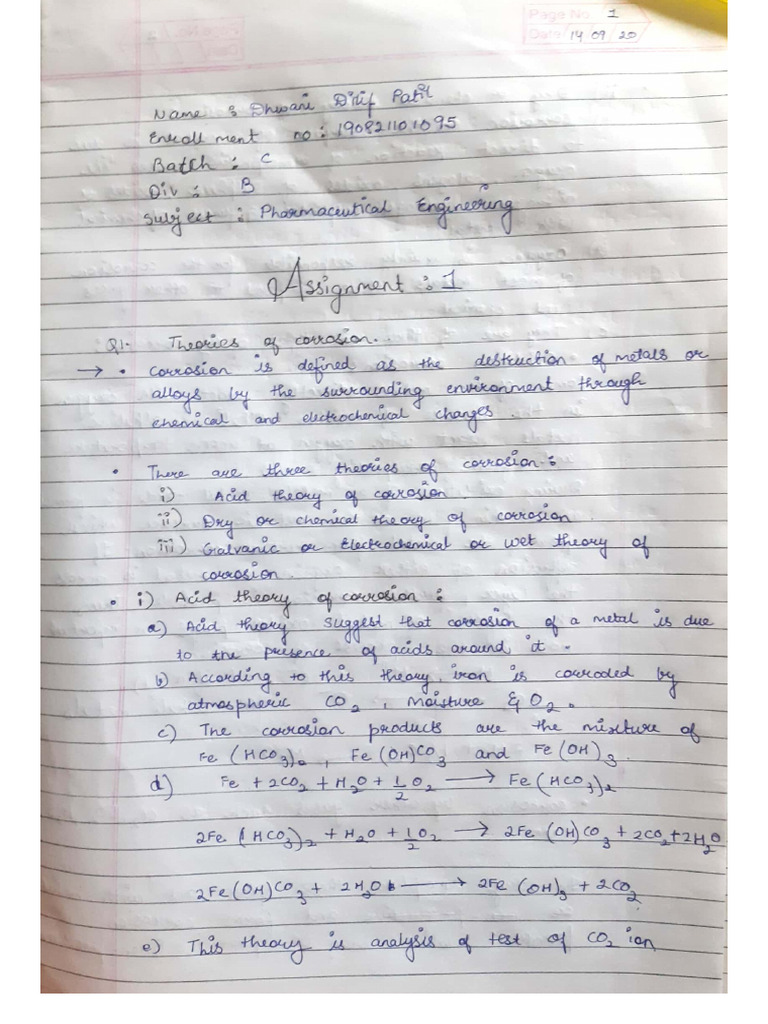 Page No. 1
Date 14 09 20
Name : Dhwani Dilip Patil
Enrollment no : 190821101095
Batch : C
Div : B
Subject : Pharmaceutical Engineering
Assignment : 1
Q1- Theories of corrosion.
→ • Corrosion is defined as the destruction of metals or
alloys by the surrounding environment through
chemical and electrochemical changes.
• There are three theories of corrosion :
i) Acid theory of corrosion.
ii) Dry or chemical theory of corrosion.
iii) Galvanic or Electrochemical or wet theory of
corrosion.
• i) Acid theory of corrosion :
a) Acid theory suggest that corrosion of a metal is due
to the presence of acids around it.
b) According to this theory, iron is corroded by
atmospheric CO2, moisture & O2.
c) The corrosion products are the mixture of
Fe(HCO3)2, Fe(OH)CO3 and Fe(OH)3.
d) Fe + 2CO2 + H2O + 1/2 O2 → Fe(HCO3)2
2Fe(HCO3)2 + H2O + 1/2 O2 → 2Fe(OH)CO3 + 2CO2 + 2H2O
2Fe(OH)CO3 + 2H2O → 2Fe(OH)3 + 2CO2
e) This theory is analysis of test of CO2 ion